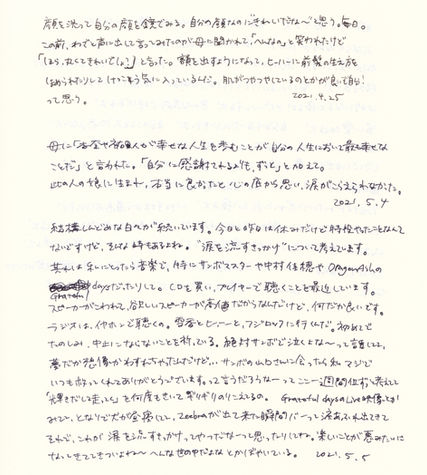 顔を洗って自分の顔を鏡でみる。自分の顔なのに"きれいだな〜"と思う。毎日。
この前、わざと声に出して言ってみたのが母に聞かれて「へんなの」と笑われたけど
「ほら、丸くてきれいでしょ？」と言った。額を出すようになって、ヒーハーに前髪の生え方を
ほめられたりして けっこう気に入っているんだ。肌がつやつやしているのとかが良くて自分！
って思う。 2021.4.25
母に「杏奈や 人が幸せな人生を歩むことが自分の人生において最も幸せな
ことだ」と言われた。「自分に感謝でき もずっと」と加えて。
此の人の娘に生まれ、本当に良かったと心の底から思い、涙がこらえられなかった。
2021.5.4
結構しんどめな日々が続いています。今日と昨日は休みだけど特段やったことなんて
ないですけど、まぁな時もあるよね。"涙を流すきっかけ"について考えています。
其れは私にとったら音楽で、特にサンボマスターや中村佳穂やDragon Ashの
Grateful daysだったりして。CDを買い、プレイヤーで聴くことを最近しています。
スピーカーがこわれて、欲しいスピーカーが高価だからなんだけど、何だか良いです。
ラジオは、イヤホンで聴くの。雪杏とヒーハーと、フジロックに行くんだ。初めてで
たのしみ、中止にならないことを祈っている。絶対サンボで泣くよな〜って話して、
夢だか想像かわすれちゃったんだけど、サンボの山口さんに会ったら私 マジで
いつも救ってくれてありがとうございます。って言うだろうな〜ってここ一週間位ずっと考えて
「輝きだして走ってく」を何度もきいて ギリギリのりこえるの。 Grateful daysのLive映像とか
みてて、となりで が登場して、Zeebraが出て来た瞬間バーって涙あふれ出てきて
それで、これが 涙を流すきっかけ、ってやつだなーって思ったりしてね。楽しいことが悪みたいに
なってきててきついよね〜 へんな世の中だよな とかぼやいている。 2021.5.5